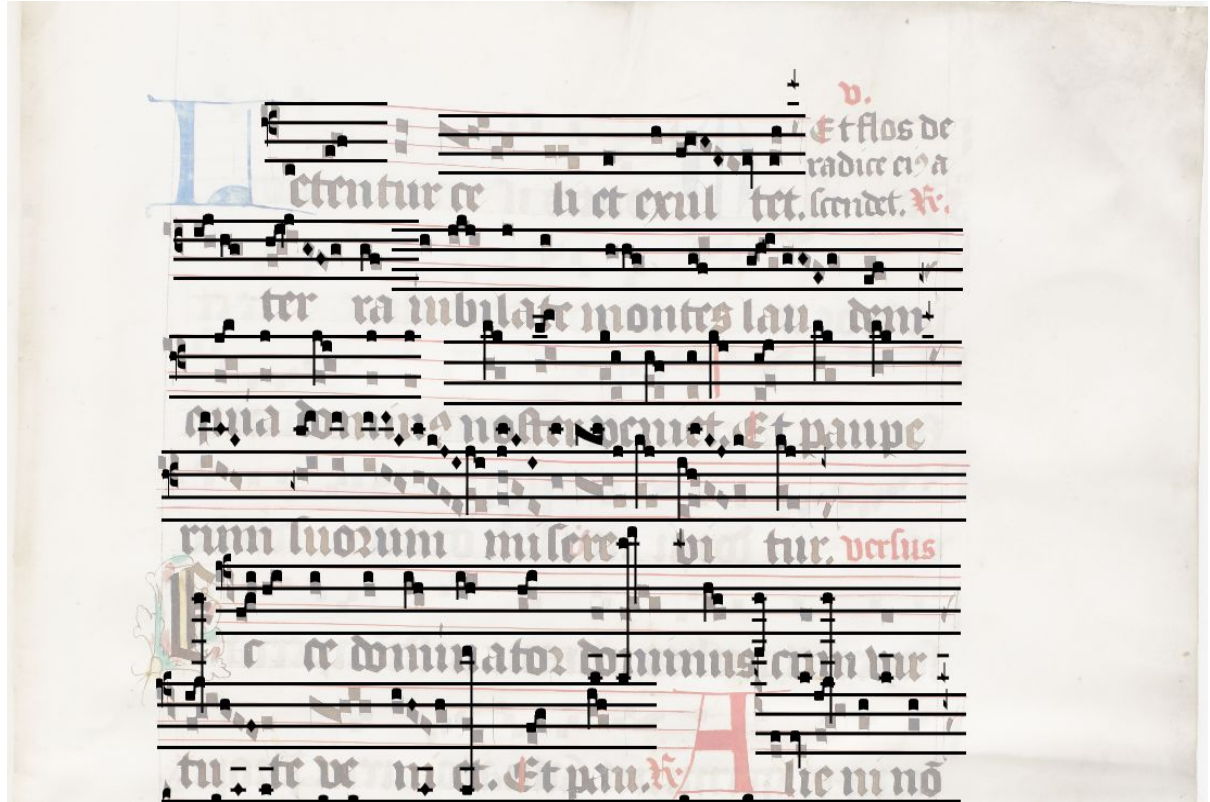 ℣.
Et flos de
radice eiꝰ a
Letentur celi et exultet. scendet. ℟.
terra iubilate montes laudem
quia dominꝰ noster veniet. Et paupe
rum suorum miserebitur. versus
Ecce dominator dominus cum vir
tute veniet. Et pau. ℟. Alieni nō